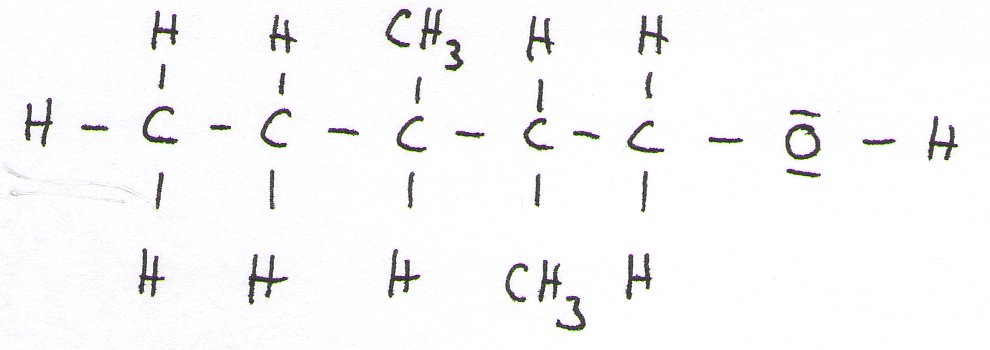 H H CH3 H H
H - C - C - C - C - C - O - H
H H H CH3 H